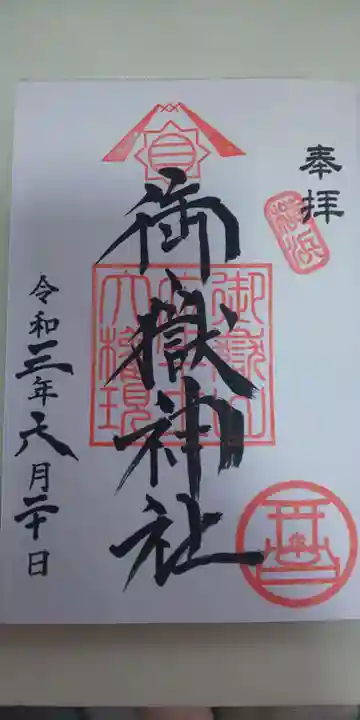 奉拝
横浜
御嶽神社
御嶽山
大権現
令和三年六月二十日